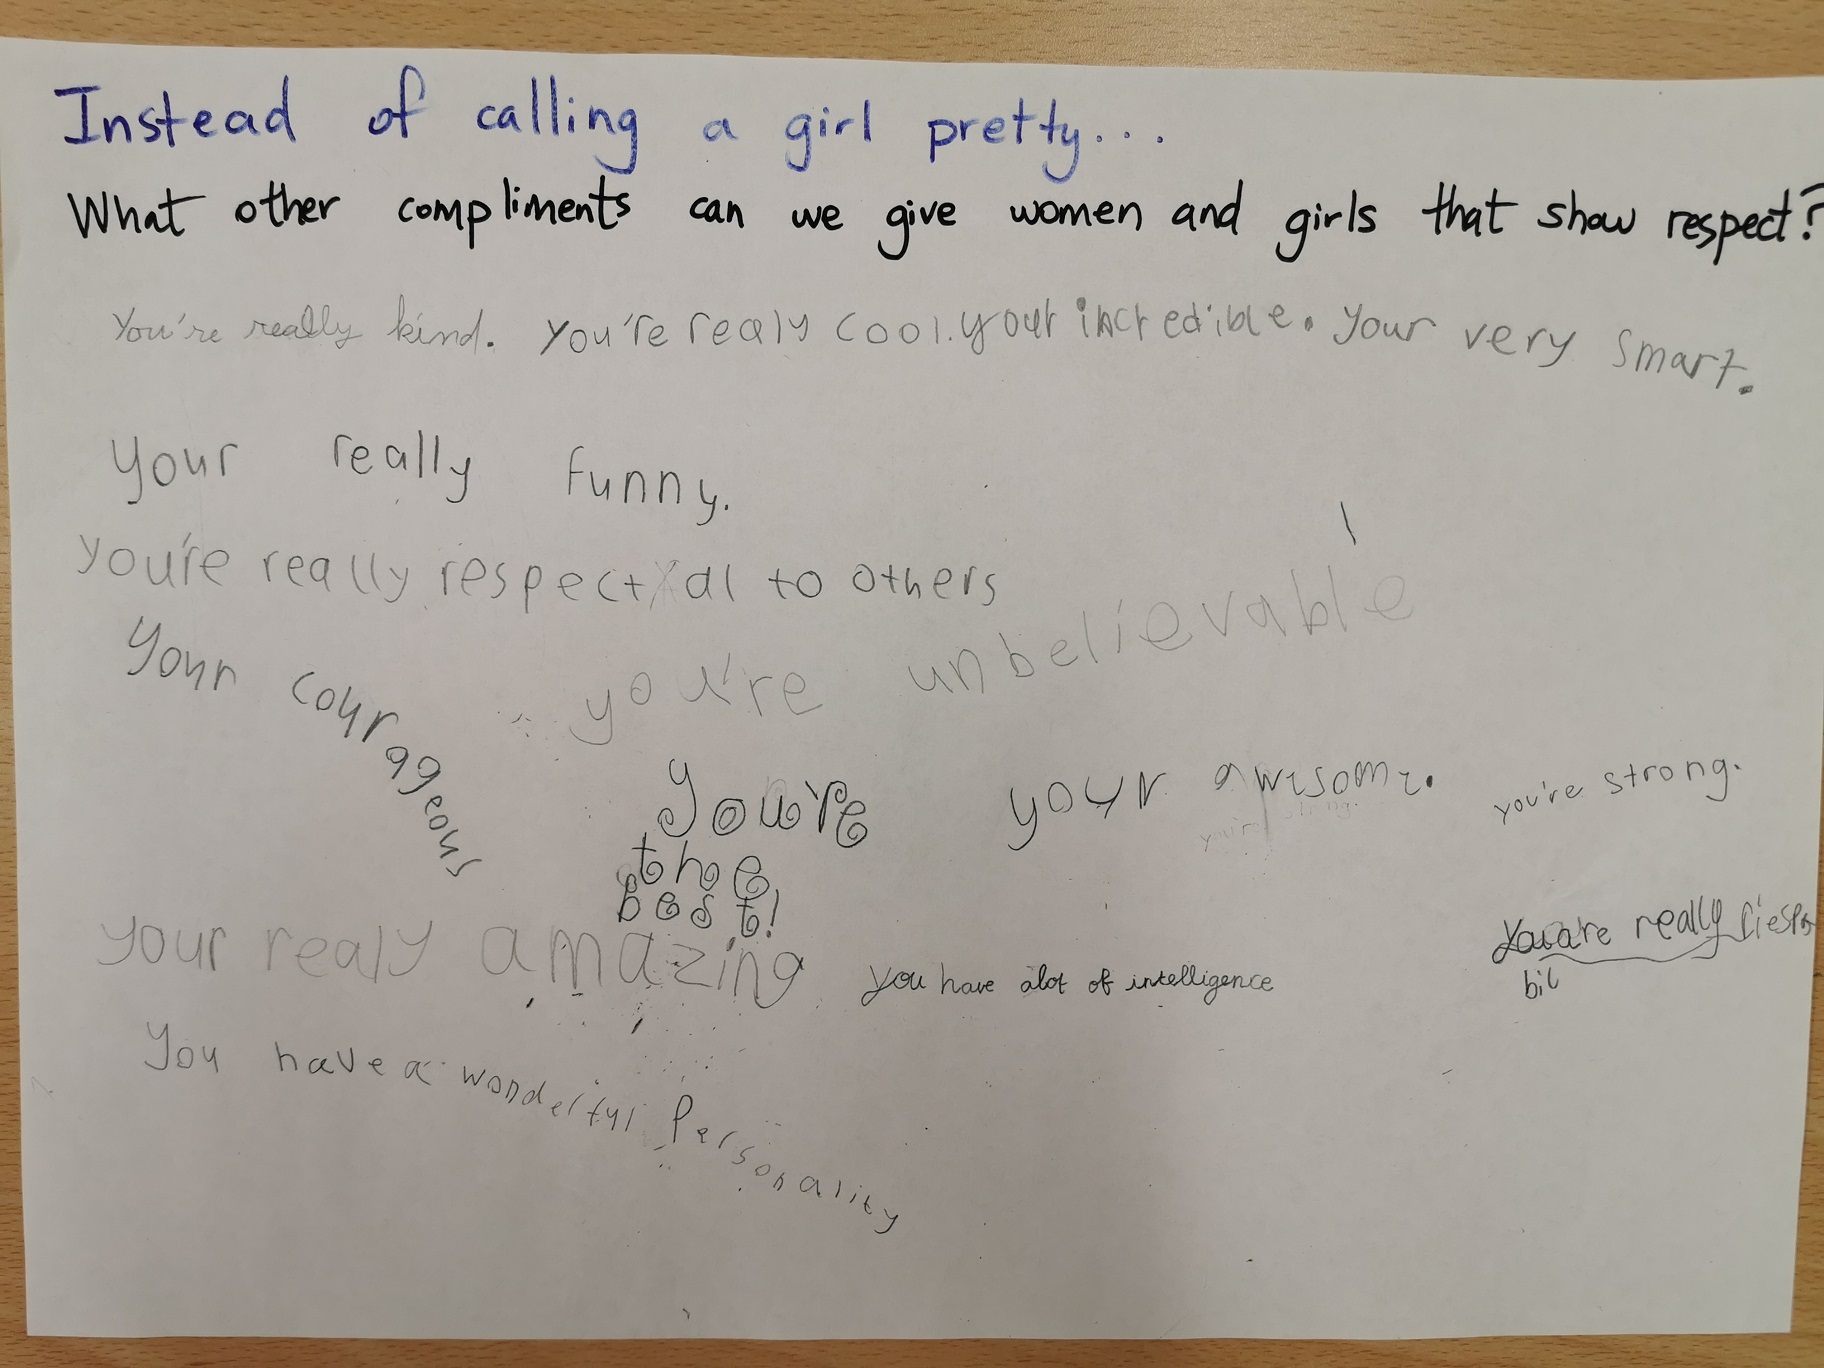 Instead of calling a girl pretty...
What other compliments can we give women and girls that show respect?
You're really kind. You're realy cool. your incredible. Your very smart.
your really funny.
you're really respectal to others
Your courageous
you're unbelievable
you're
the
best!
your awesome.
you're strong.
you're strong.
your realy amazing
you have alot of intelligence
You are really
You have a wonderful Personality